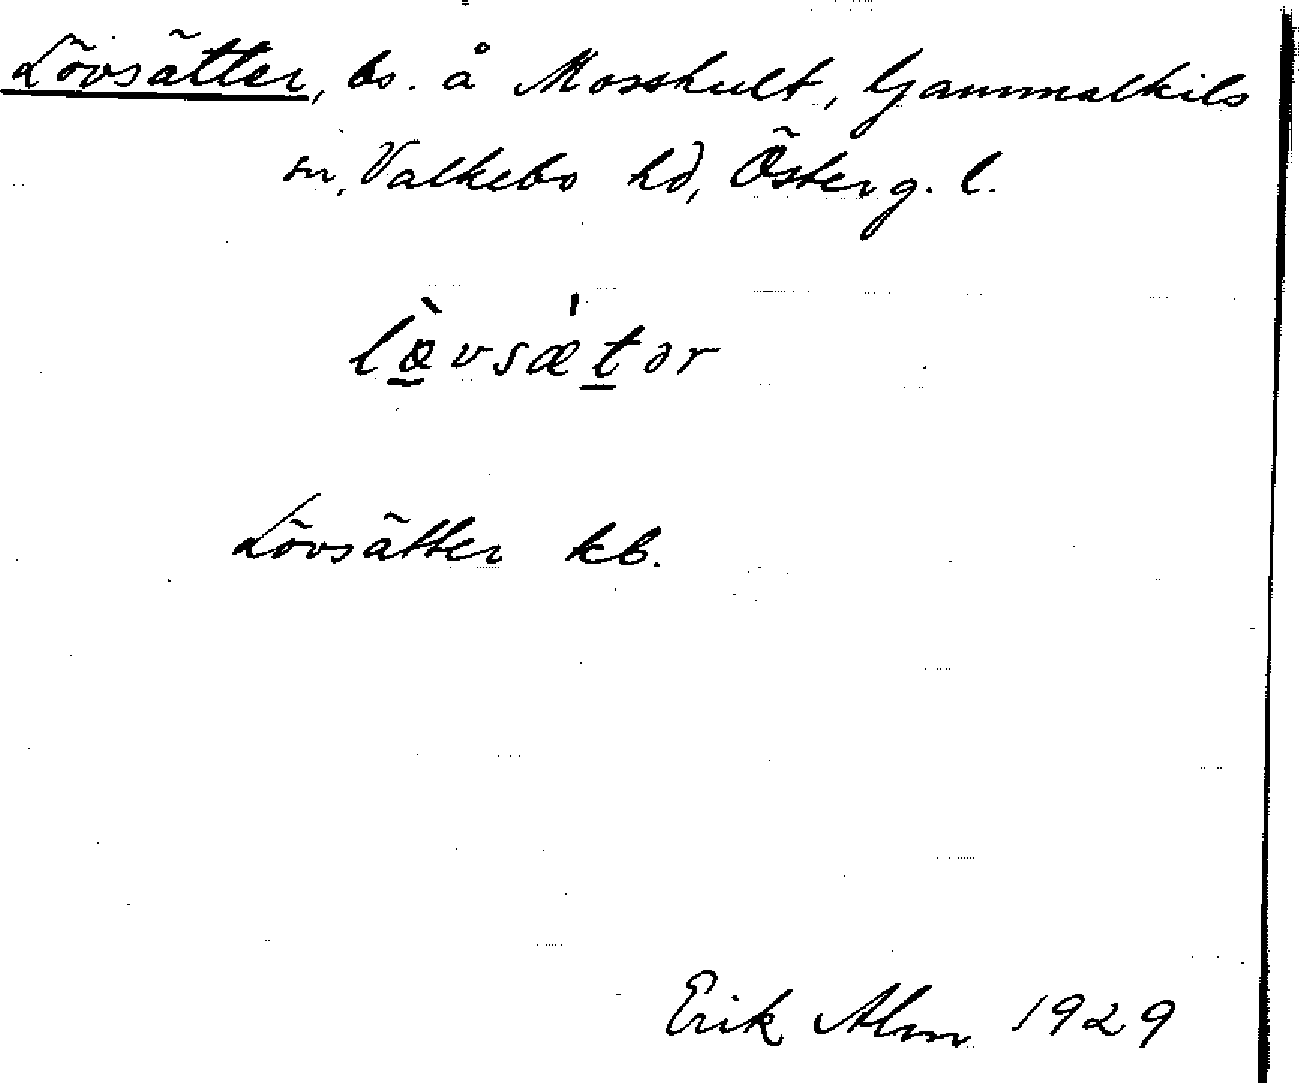 Lövsätter, bs. å Mosshult, Gammalkils
sn, Valkebo hd, Österg. l.
lœ̀vsætər
Lövsätter kb.
Erik Alm 1929